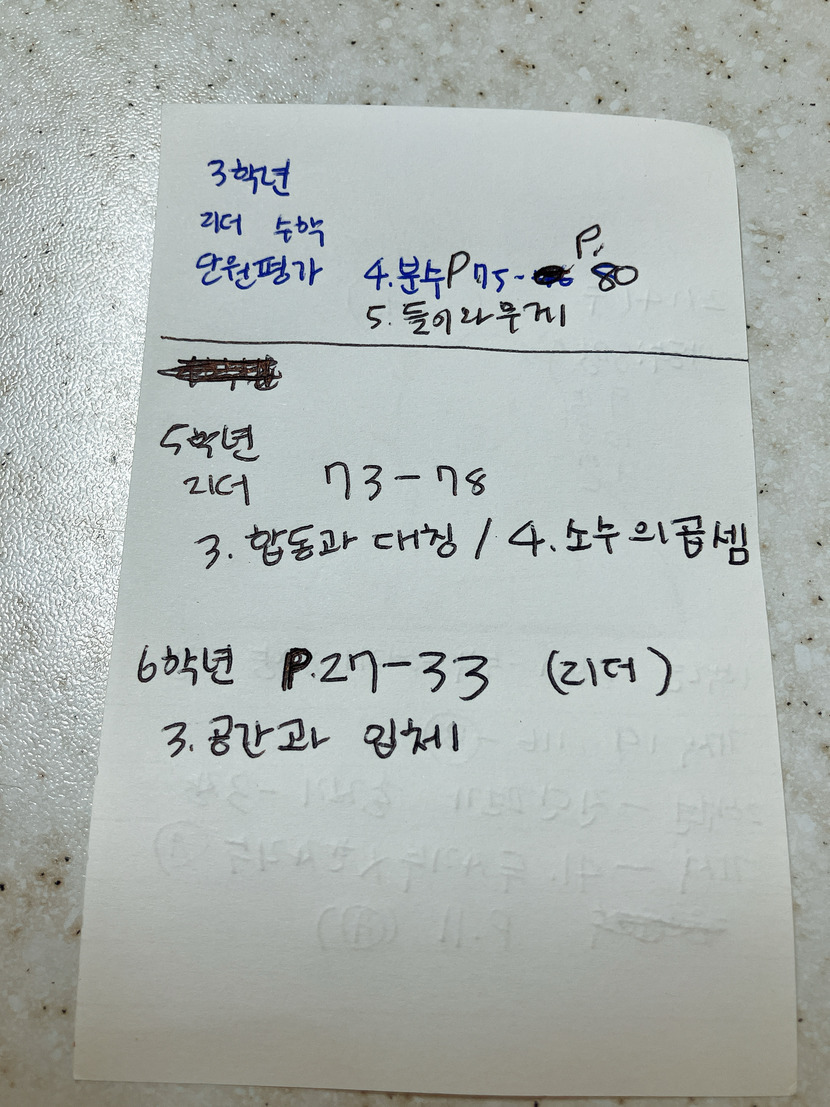 3학년
리더 수학
단원평가 4.분수 P 75- P. 80
5. 들이와 무게
5학년
리더 73-78
3. 합동과 대칭 / 4. 소수의 곱셈
6학년 P.27-33 (리더)
3. 공간과 입체